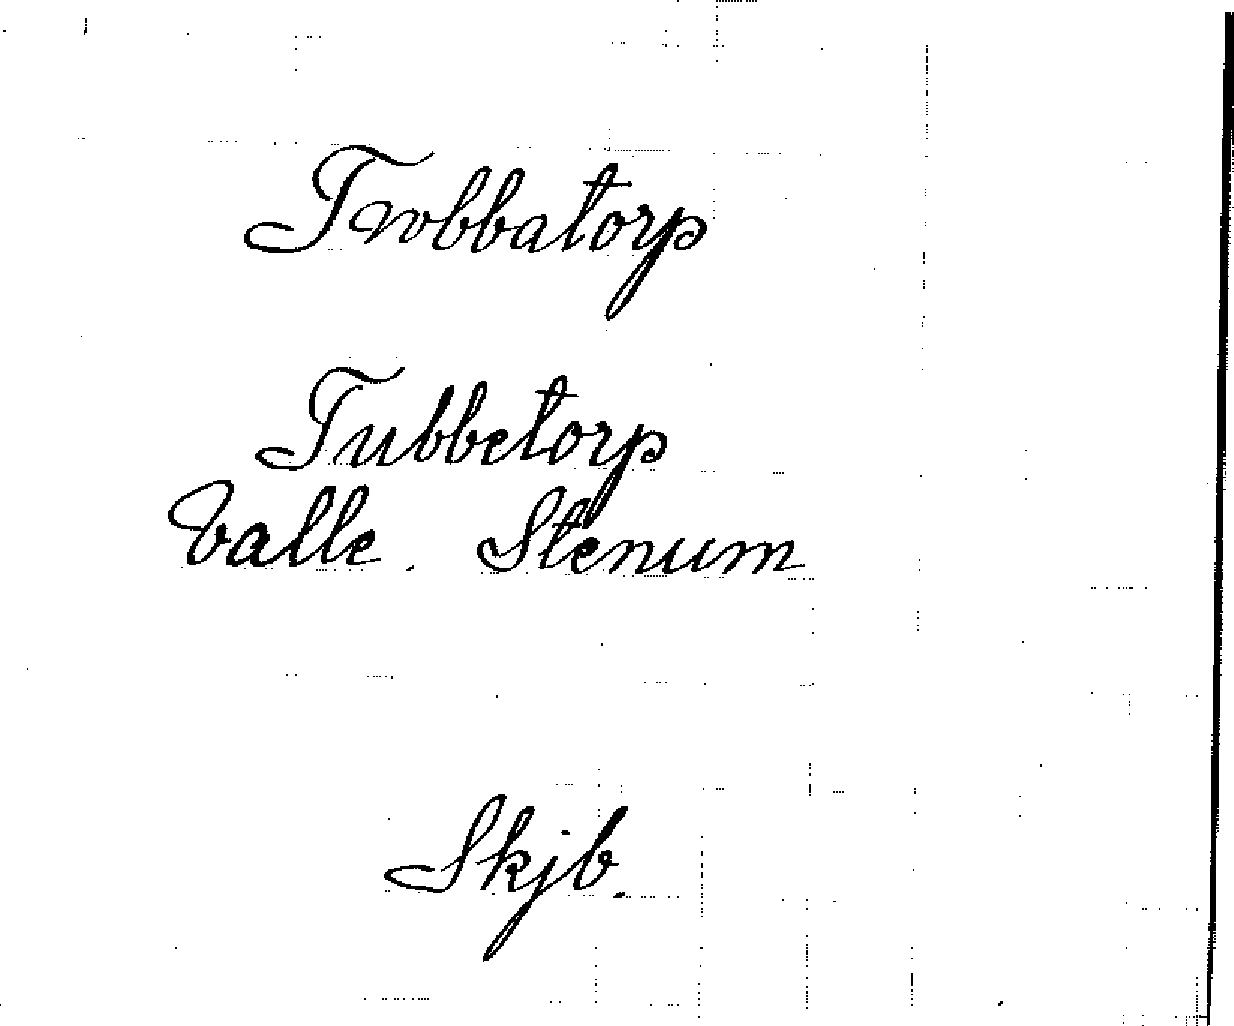 Twbbatorp
Tubbetorp
Valle. Stenum
Skjb.